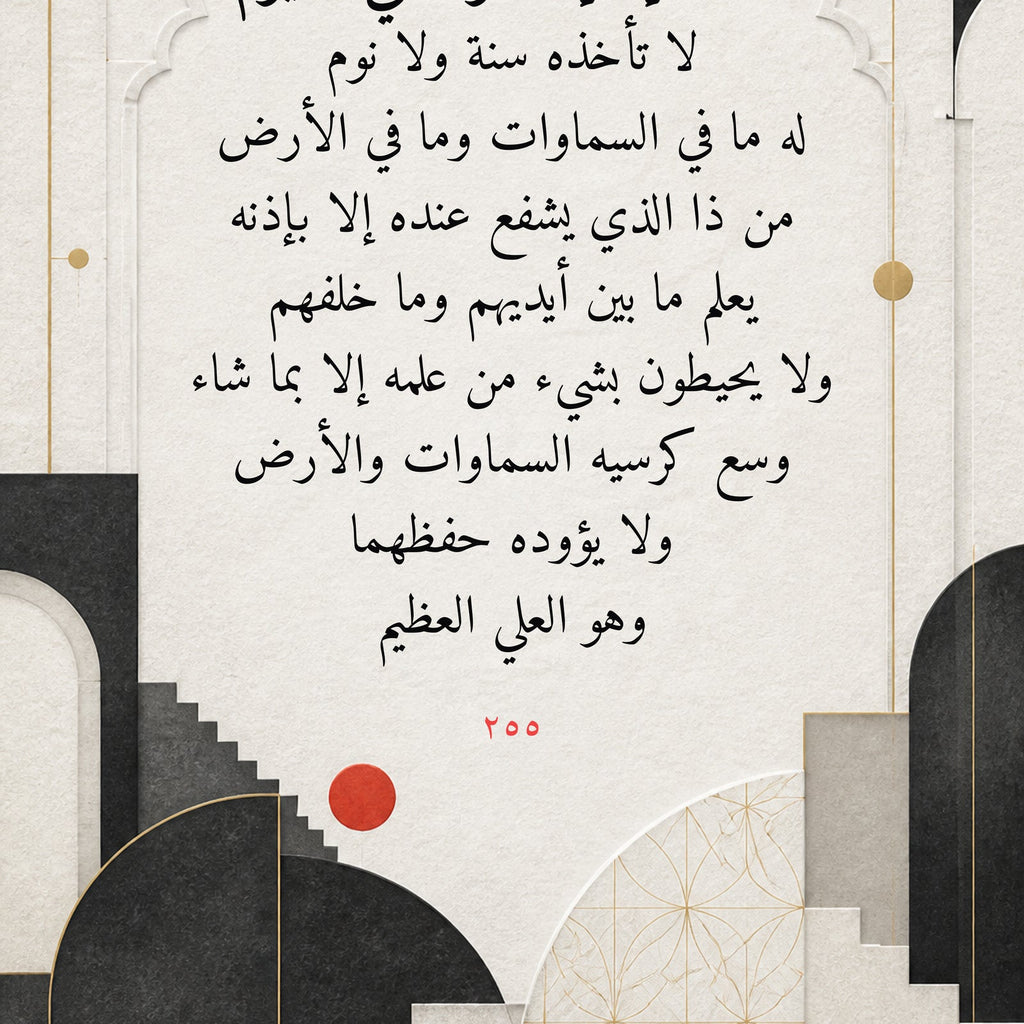 لا تأخذه سنة ولا نوم
له ما في السماوات وما في الأرض
من ذا الذي يشفع عنده إلا بإذنه
يعلم ما بين أيديهم وما خلفهم
ولا يحيطون بشيء من علمه إلا بما شاء
وسع كرسيه السماوات والأرض
ولا يؤوده حفظهما
وهو العلي العظيم
٢٥٥